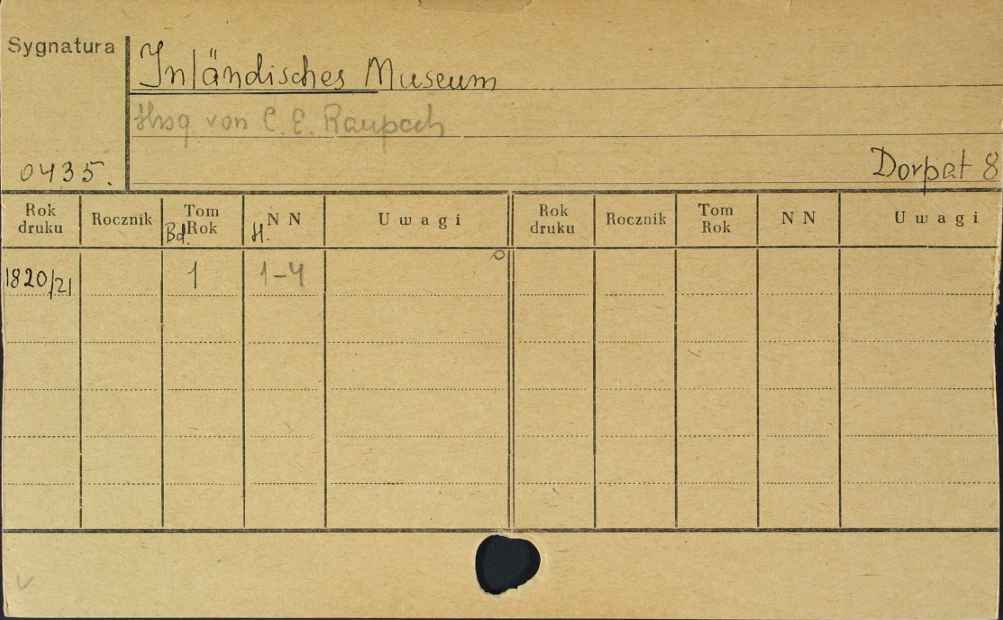 Sygnatura
Inländisches Museum
Hrsg von C. E. Raupach
0435.
Dorpat 8
Rok druku Rocznik Tom Rok Bd. N N H. Uwagi Rok druku Rocznik Tom Rok N N Uwagi
1820/21 1 1-4